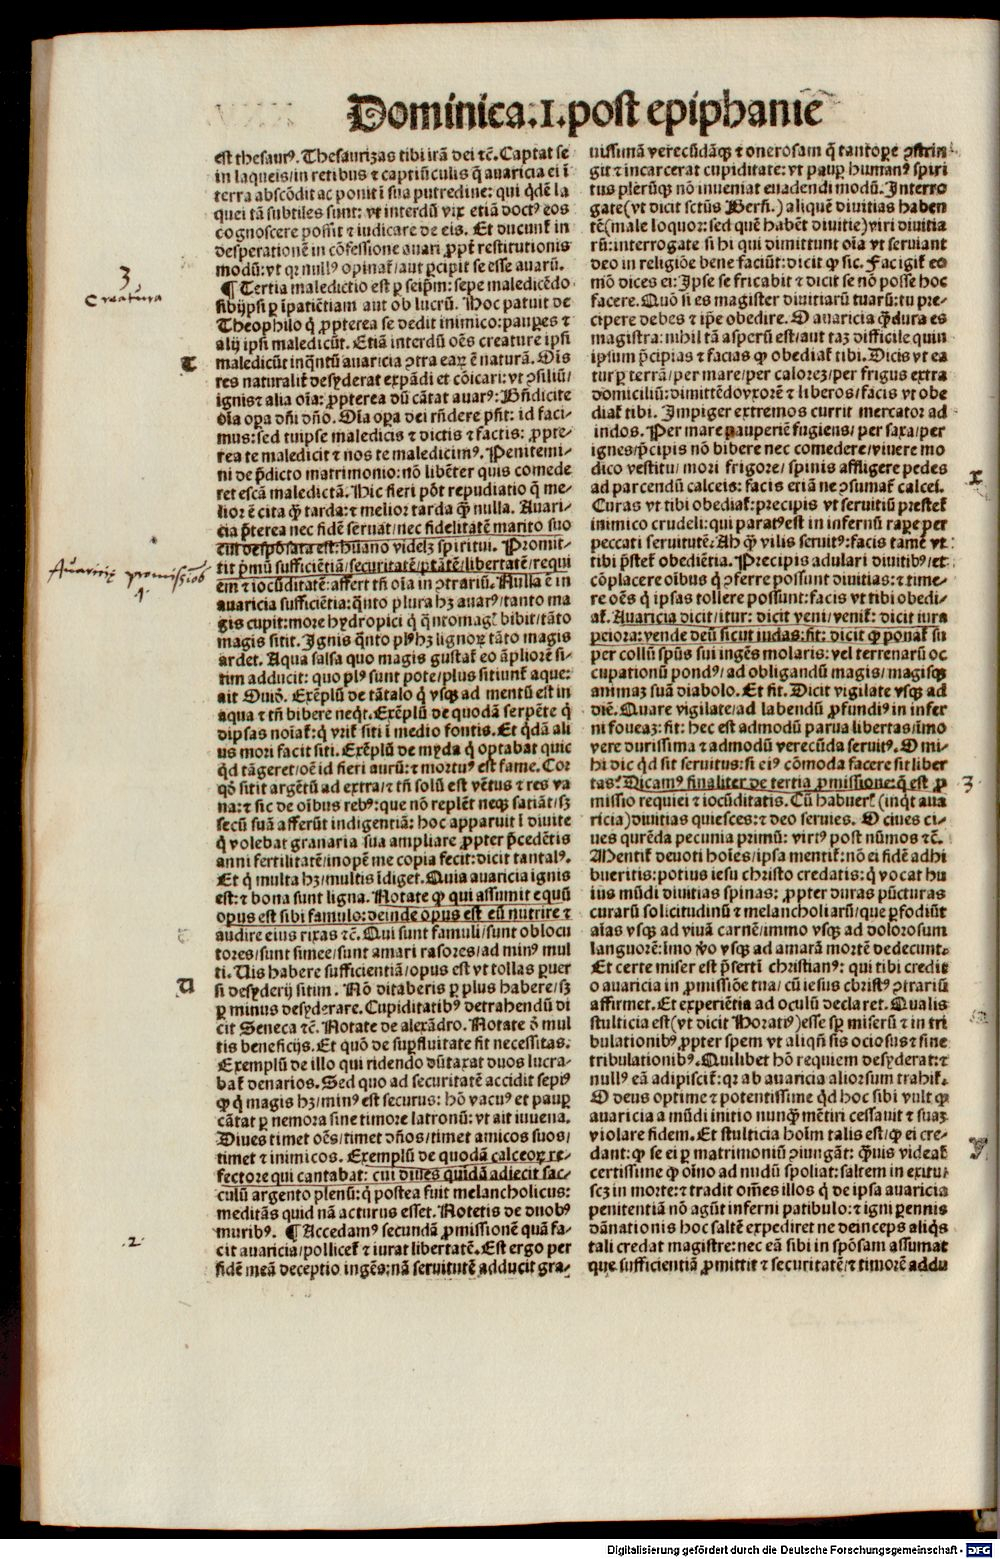 Dominica.I.post epiphanie
est thesaurꝰ. Thesaurizas tibi irā dei ⁊c̄. Captat se
in laqueis/in retibus ⁊ captiūculis q̄ auaricia ei ī
terra abscōdit ac ponit ī sua putredine: qui q̄dē la
quei tā subtiles sunt: vt interdū vix etiā doctꝰ eos
cognoscere possit ⁊ iudicare de eis. Et ducunt̄ in
desperationē in cōfessione auari ꝓpt̄ restitutionis
modū: vt qr nullꝰ opinat̄/aut ꝑcipit se esse auarū.
¶ Tertia maledictio est ꝑ seip̄m: sepe maledicēdo
sibiipsi ꝑ īpatiētiam aut ob lucrū. Hoc patuit de
Theophilo q̄ ꝓpterea se dedit inimico: pauꝑes ⁊
alij ipsi maledicūt. Etiā interdū oēs creature ipsi
maledicūt inq̄ntū auaricia ꝯtra eaꝝ ē naturā. Oīs
res naturalit̄ desyderat expādi et cōicari: vt ꝯsiliū/
ignis ⁊ alia oīa: ꝓpterea dū cātat auarꝰ: Bn̄dicite
oīa oꝑa dn̄i dn̄o. Oīa oꝑa dei rn̄dere pn̄t: id faci-
mus: sed tuipse maledicis ⁊ dictis ⁊ factis: ꝓpte-
rea te maledicit ⁊ nos te maledicimꝰ. Penitemi-
ni de p̄dicto matrimonio: nō libēter quis comede
ret escā maledictā. Hic fieri pōt repudiatio q̄ me-
lior ē cita q̄ꝫ tarda: ⁊ melior tarda q̄ꝫ nulla. Auari-
cia p̄terea nec fidē seruat/nec fidelitatē marito suo
cui desposata est: hūano videlꝫ spiritui. Promit-
tit p̄mū sufficiētiā/securitatē/ptātē/libertatē/requi
em ⁊ iocūditatē: affert tn̄ oīa in ꝯtrariū. Nulla ē in
auaricia sufficiētia: q̄nto plura hꝫ auarꝰ/tanto ma
gis cupit: more hydropici q̄ q̄ntomagꝭ bibit/tāto
magis sitit. Ignis q̄nto plꝰhꝫ lignoꝝ tāto magis
ardet. Aqua salsa quo magis gustat̄ eo āpliorē si-
tim adducit: quo plꝰ sunt pote/plus sitiunt̄ aque:
ait Ouiđ. Exēplū de tātalo q̄ vsqꝫ ad mentū est in
aqua ⁊ tn̄ bibere neq̄t. Exēplū de quodā serpēte q̄
dipsas noīat̄: q̄ vrit̄ siti ī medio fontis. Et q̄dā ali
us mori facit siti. Exēplū de myda q̄ optabat quic
q̄d tāgeret/oē id fieri aurū: ⁊ mortuꝰ est fame. Cor
qđ sitit argētū ad extra/⁊ tn̄ solū est vētus ⁊ res va
na: ⁊ sic de oībus rebꝰ: que nō replēt neqꝫ satiāt/sꝫ
secū suā afferūt indigentiā: hoc apparuit ī diuite
q̄ volebat granaria sua ampliare ꝓpter p̄cedētis
anni fertilitatē/inopē me copia fecit: dicit tantalꝰ.
Et q̄ multa hꝫ/multis īdiget. Quia auaricia ignis
est: ⁊ bona sunt ligna. Notate ꝙ qui assumit equū
opus est sibi famulo: deinde opus est eū nutrire ⁊
audire eius rixas ⁊c̄. Qui sunt famuli/sunt oblocu
tores/sunt simee/sunt amari rasores/ad minꝰ mul
ti. Uis habere sufficientiā/opus est vt tollas ꝑuer
si desyderij sitim. Nō ditaberis ꝑ plus habere/sꝫ
ꝑ minus desyderare. Cupiditatibꝰ detrahendū di
cit Seneca ⁊c̄. Notate de alexādro. Notate ꝺ̄ mul
tis beneficijs. Et quō de suꝑfluitate fit necessitas.
Exemplū de illo qui ridendo dūtaxat duos lucra-
bat̄ denarios. Sed quo ad securitatē accidit sepiꝰ
ꝙ q̄ magis hꝫ/minꝰ est securus: hō vacuꝰ et pauꝑ
cātat ꝑ nemora sine timore latronū: vt ait iuuena.
Diues timet oēs/timet dn̄os/timet amicos suos/
timet ⁊ inimicos. Exemplū de quodā calceoꝝ re-
fectore qui cantabat: cui diues quidā adiecit sac-
culū argento plenū: q̄ postea fuit melancholicus:
meditās quid nā acturus esset. Notetis de duobꝰ
muribꝰ. ¶ Accedamꝰ secundā ꝓmissionē quā fa-
cit auaricia/pollicet̄ ⁊ iurat libertatē. Est ergo per
fidē meā deceptio ingēs: nā seruitutē adducit gra-
uissimā verecūdāqꝫ ⁊ onerosam q̄ tantoꝑe ꝯstrin-
git ⁊ incarcerat cupiditate: vt pauꝑ humanꝰ spiri
tus plerūqꝫ nō inueniat euadendi modū. Interro
gate (vt dicit sctūs Berñ.) aliquē diuitias haben
tē (male loquor: sed quē habēt diuitie) viri diuitia
rū: interrogate si hi qui dimittunt oīa vt seruiant
deo in religiōe bene faciūt: dicit ꝙ sic. Fac igit̄ eo
mō dices ei: Ipse se fricabit ⁊ dicit se nō posse hoc
facere. Quō si es magister diuitiarū tuarū: tu pre-
cipere debes ⁊ ip̄e obedire. O auaricia q̄ꝫdura es
magistra: nihil tā asperū est/aut taꝫ difficile quin
ipsum p̄cipias ⁊ facias ꝙ obediat̄ tibi. Dicis vt ea
tur ꝑ terrā/per mare/per caloreꝫ/per frigus extra
domiciliū: dimittēdovxorē ⁊ liberos/facis vt obe
diat̄ tibi. Impiger extremos currit mercator ad
indos. Per mare pauperiē fugiens/per saxa/per
ignes/p̄cipis nō bibere nec comedere/viuere mo
dico vestitu/mori frigore/spinis affligere pedes
ad parcendū calceis: facis etiā ne ꝯsumat̄ calcei.
Curas vt tibi obediat̄: precipis vt seruitiū prestet̄
inimico crudeli: qui paratꝰest in infernū raꝑe per
peccati seruitutē: Ah q̄ꝫ vilis seruitꝰ: facis tamē vt
tibi p̄stet̄ obediētia. Precipis adulari diuitibꝰ/et
cōplacere oībus q̄ ꝯferre possunt diuitias: ⁊ time-
re oēs q̄ ipsas tollere possunt: facis vt tibi obedi-
at̄. Auaricia dicit/itur: dicit veni/venit̄: dicit iura
peiora: vende deū sicut iudas: fit: dicit ꝙ ponat̄ su
per collū spūs sui ingēs molaris: vel terrenarū oc
cupationū pondꝰ/ad obligandū magis/magisqꝫ
animaꝫ suā diabolo. Et fit. Dicit vigilate vsqꝫ ad
diē. Quare vigilate/ad labendū ꝓfundiꝰ in infer
ni foueaꝫ: fit: hec est admodū parua libertas/īmo
vere durissima ⁊ admodū verecūda seruitꝰ. O mi-
hi dic q̄d sit seruitus: si eiꝰ cōmoda facere sit liber
tas? Dicamꝰ finaliter de tertia ꝓmissione: q̄ est ꝓ
missio requiei ⁊ iocūditatis. Cū habuerꝭ (inq̄t aua
ricia) diuitias quiesces: ⁊ deo seruies. O ciues ci-
ues querēda pecunia primū: virtꝰ post nūmos ⁊c̄.
Mentit̄ deuoti hoīes/ipsa mentit̄: nō ei fidē adhi
bueritis: potius iesu christo credatis: q̄ vocat hu
ius mūdi diuitias spinas: ꝓpter duras pūcturas
curarū solicitudinū ⁊ melancholiarū/que ꝑfodiūt
aīas vsqꝫ ad viuā carnē/immo vsqꝫ ad dolorosum
languorē: īmo v̄o vsqꝫ ad amarā mortē deducunt.
Et certe miser est p̄sertī christianꝰ: qui tibi credit
o auaricia in ꝓmissiōe tua/cū iesus christꝰ ꝯtrariū
affirmet. Et experiētia ad oculū declaret. Qualis
stulticia est (vt dicit Horatiꝰ) esse sꝑ miserū ⁊ in tri
bulationibꝰ ꝓpter spem vt aliqn̄ sis ociosus ⁊ sine
tribulationibꝰ. Quilibet hō requiem desyderat: ⁊
nullꝰ eā adipiscit̄: qr ab auaricia aliorsum trahit̄.
O deus optime ⁊ potentissime q̄d hoc sibi vult ꝙ
auaricia a mūdi initio nunq̄ꝫ mētiri cessauit ⁊ suaꝫ
violare fidem. Et stulticia hoīm talis est/ꝙ ei cre-
dant: ꝙ se ei ꝑ matrimoniū ꝯiungāt: q̄ꝫuis videat̄
certissime ꝙ oīno ad nudū spoliat: saltem in exitu:
scꝫ in morte: ⁊ tradit om̄es illos q̄ de ipsa auaricia
penitentiā nō agūt inferni patibulo: ⁊ igni ꝑennis
dānationis hoc saltē expediret ne deinceps aliq̄s
tali credat magistre: nec eā sibi in spōsam assumat
que sufficientiā ꝓmittit ⁊ securitatē/⁊ timorē addu
3
Creatura
T
Auaritiæ promissiōes
1.
U
.2.
X
3
Y
Digitalisierung gefördert durch die Deutsche Forschungsgemeinschaft - DFG